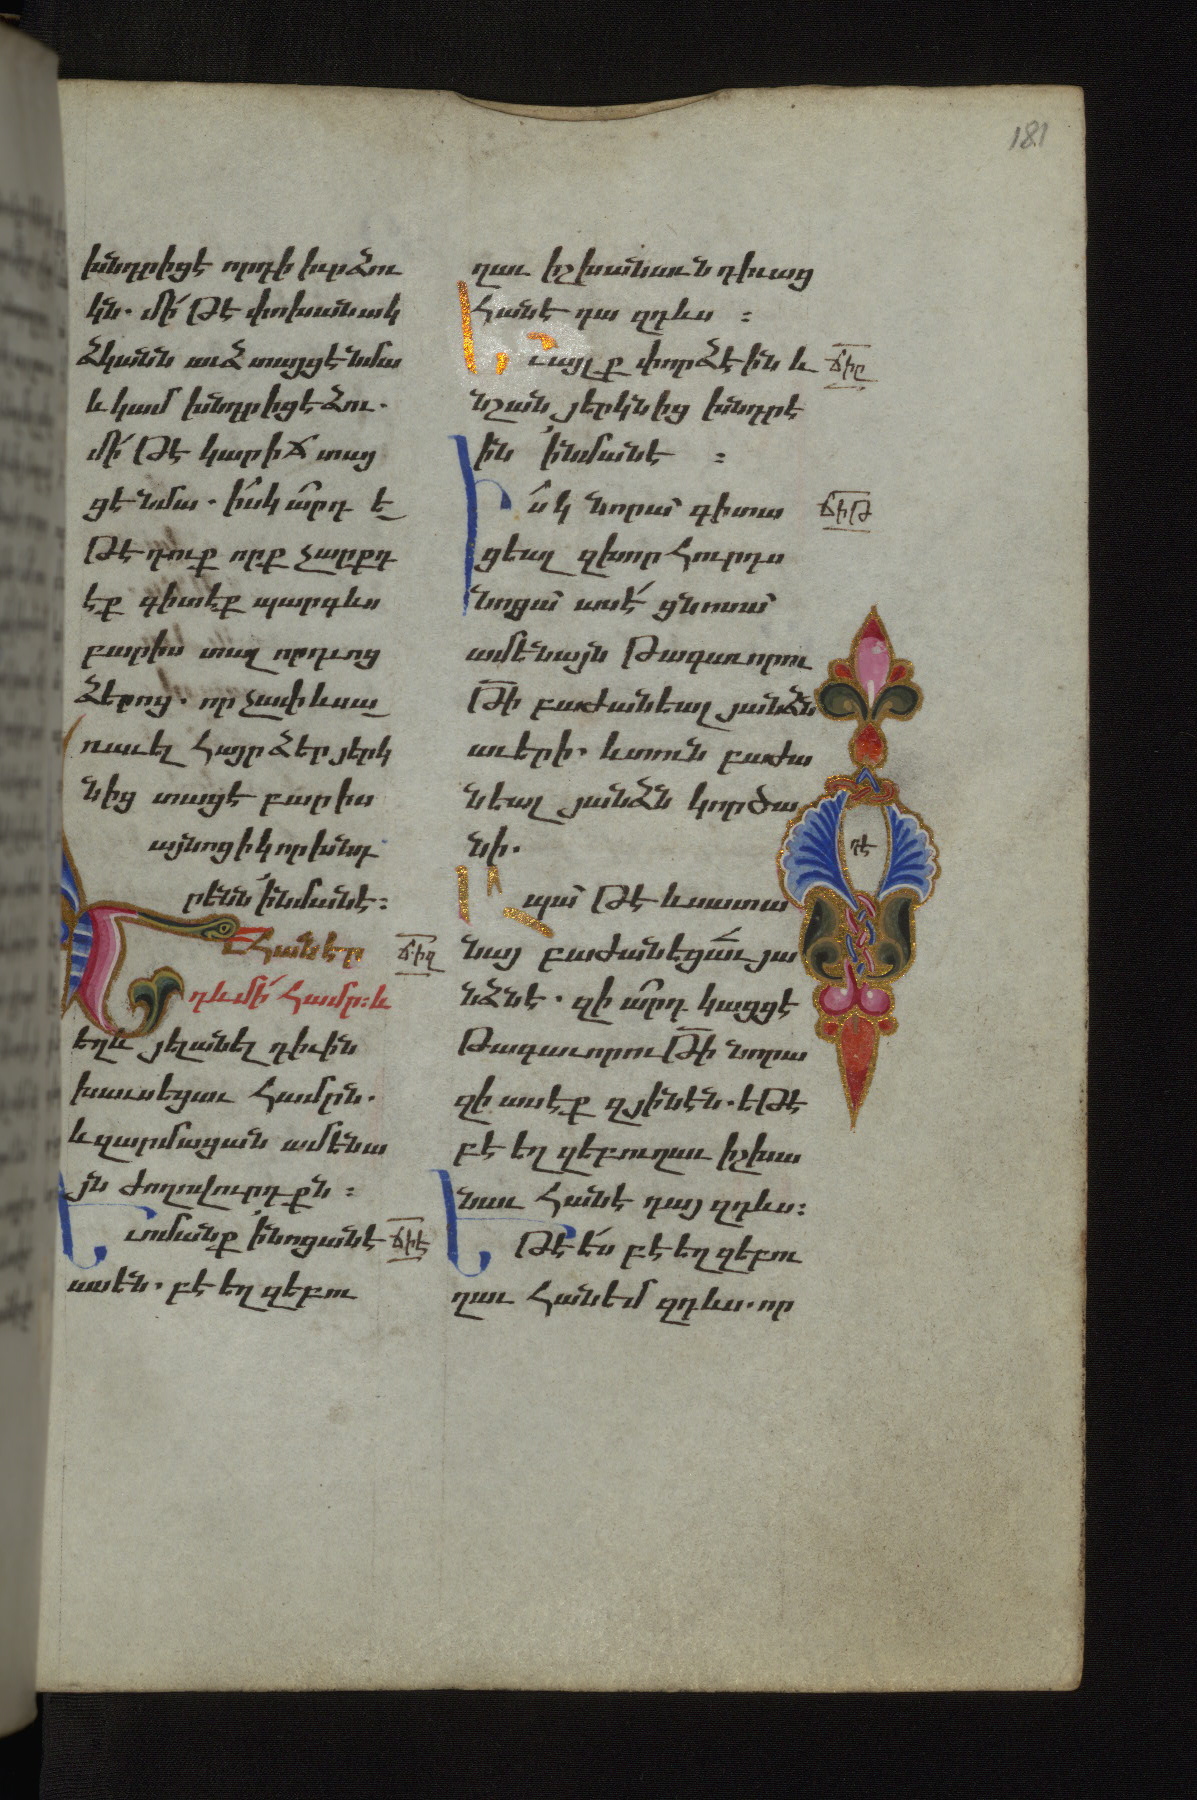 181
խնդրիցէ որդի իւր ձու
կն. մի՛ թէ փոխանակ
ձկանն աւձ տայցէ նմա
և կամ խնդրիցէ ձու.
մի՛ թէ կարիճ տայ
ցէ նմա. իսկ արդ ե
թէ դուք որք չարքդ
էք գիտէք պարգևս
բարիս տալ որդւոց
ձերոց. որչափ ևս ա
ռաւել հայր ձեր յերկ
նից տացէ բարիս
այնոցիկ որ խնդ
րենն ՛ինմանէ :
Հանեալ ՃԻԷ
դև մի՛ համր : և
եղև յելանել դիւին
խաւսեցաւ համրն.
և զարմացան ամենա
յն ժողովուրդքն :
Եւ ոմանք ՛ինոցանէ ՃԻԷ
ասեն. բէեղզեբու
ղաւ իշխանաւն դիւաց
հանէ դա զդևս :
Եւ այլք փորձէին և ՃԻԸ
նշան յերկնից խնդրէ
ին ՛ինմանէ :
Իսկ նորա՛ գիտա ՃԻԹ
ցեալ զխորհուրդս
նոցա՛ ասէ՛ ցնոսա՛
ամենայն թագաւորու
թի բաժանեալ յանձն
աւերի. և տուն բաժա
նեալ յանձն կործա
նի. ԴԷ
Իսկ ապա՛ թէ և սատա
նայ բաժանեցաւ յա
նձնէ. զի արդ կացցէ
թագաւորութի նորա
զի ասէք զյինէն. եթէ
բէեղզեբուղաւ իշխա
նաւ հանէ դայ զդևս :
Եթէ ես բէեղզեբու
ղաւ հանեմ զդևս. որ